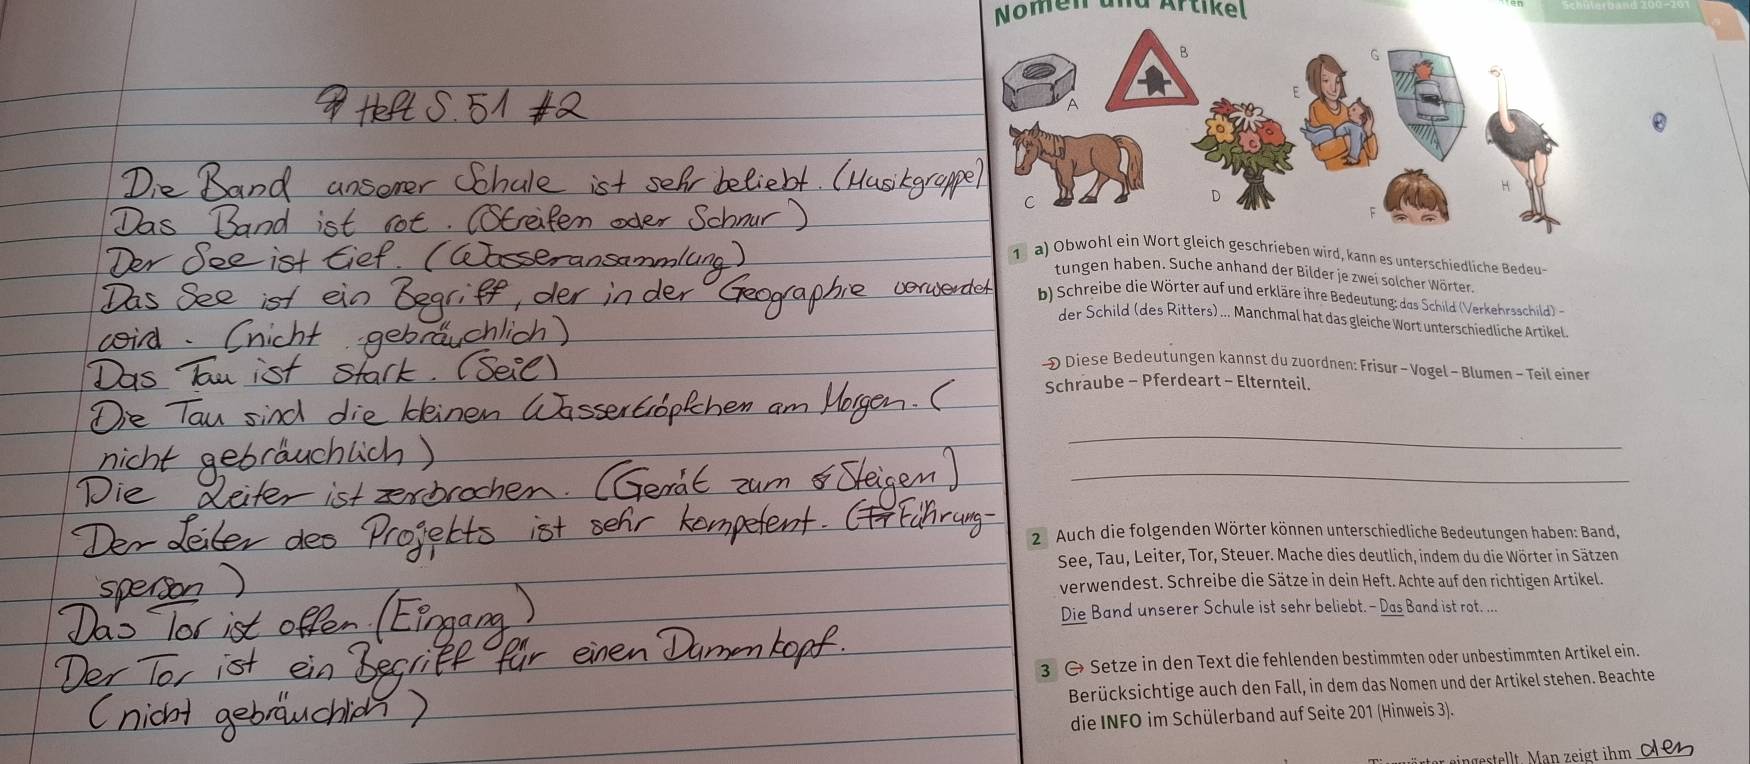 Heft S. 51 #2
Die Band unserer Schule ist sehr beliebt. (Musikgruppe)
Das Band ist rot. (Streifen oder Schnur)
Der See ist tief. (Wasseransammlung)
Das See ist ein Begriff, der in der Geographie verwendet
wird. (nicht gebräuchlich)
Das Tau ist stark. (Seil)
Die Tau sind die kleinen Wassertröpfchen am Morgen. (
nicht gebräuchlich)
Die Leiter ist zerbrochen. (Gerät zum Steigen)
Der Leiter des Projekts ist sehr kompetent. (Führung-
sperson)
Das Tor ist offen. (Eingang)
Der Tor ist ein Begriff für einen Dummkopf.
(nicht gebräuchlich)
Nomen und Artikel
Schülerband 200-201
A
B
C
D
E
F
G
H
1 a) Obwohl ein Wort gleich geschrieben wird, kann es unterschiedliche Bedeu-
tungen haben. Suche anhand der Bilder je zwei solcher Wörter.
b) Schreibe die Wörter auf und erkläre ihre Bedeutung: das Schild (Verkehrsschild) –
der Schild (des Ritters) ... Manchmal hat das gleiche Wort unterschiedliche Artikel.
Diese Bedeutungen kannst du zuordnen: Frisur – Vogel – Blumen – Teil einer
Schraube – Pferdeart – Elternteil.
2 Auch die folgenden Wörter können unterschiedliche Bedeutungen haben: Band,
See, Tau, Leiter, Tor, Steuer. Mache dies deutlich, indem du die Wörter in Sätzen
verwendest. Schreibe die Sätze in dein Heft. Achte auf den richtigen Artikel.
Die Band unserer Schule ist sehr beliebt. – Das Band ist rot. ...
3 Setze in den Text die fehlenden bestimmten oder unbestimmten Artikel ein.
Berücksichtige auch den Fall, in dem das Nomen und der Artikel stehen. Beachte
die INFO im Schülerband auf Seite 201 (Hinweis 3).
eingestellt. Man zeigt ihm den